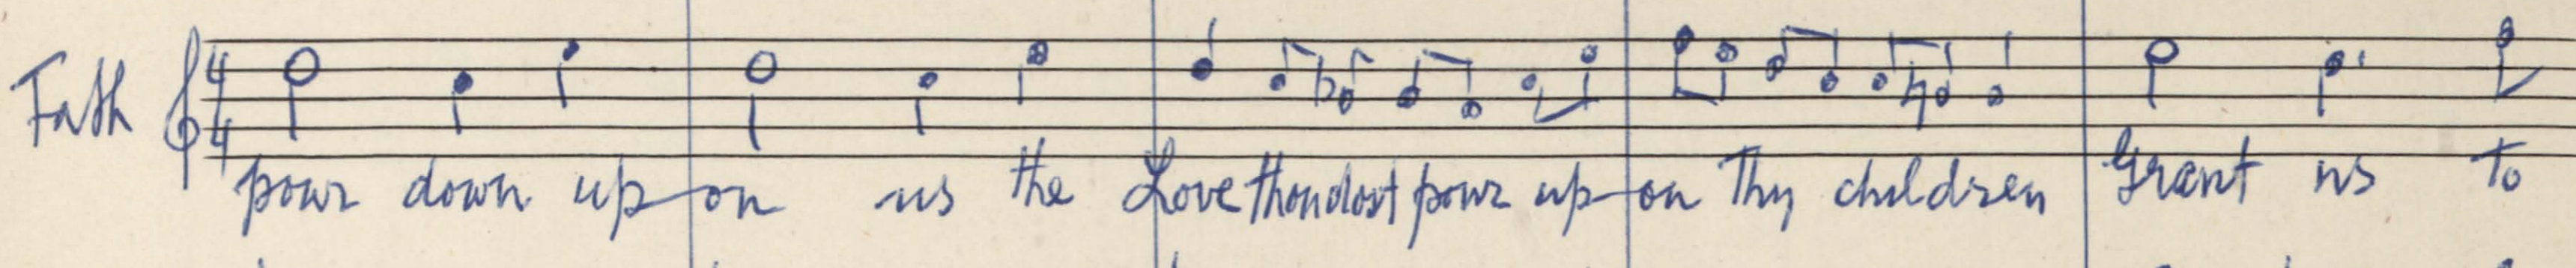 Fath 4 4
pour down up-on us the Love thou dost pour up-on Thy children Grant us To